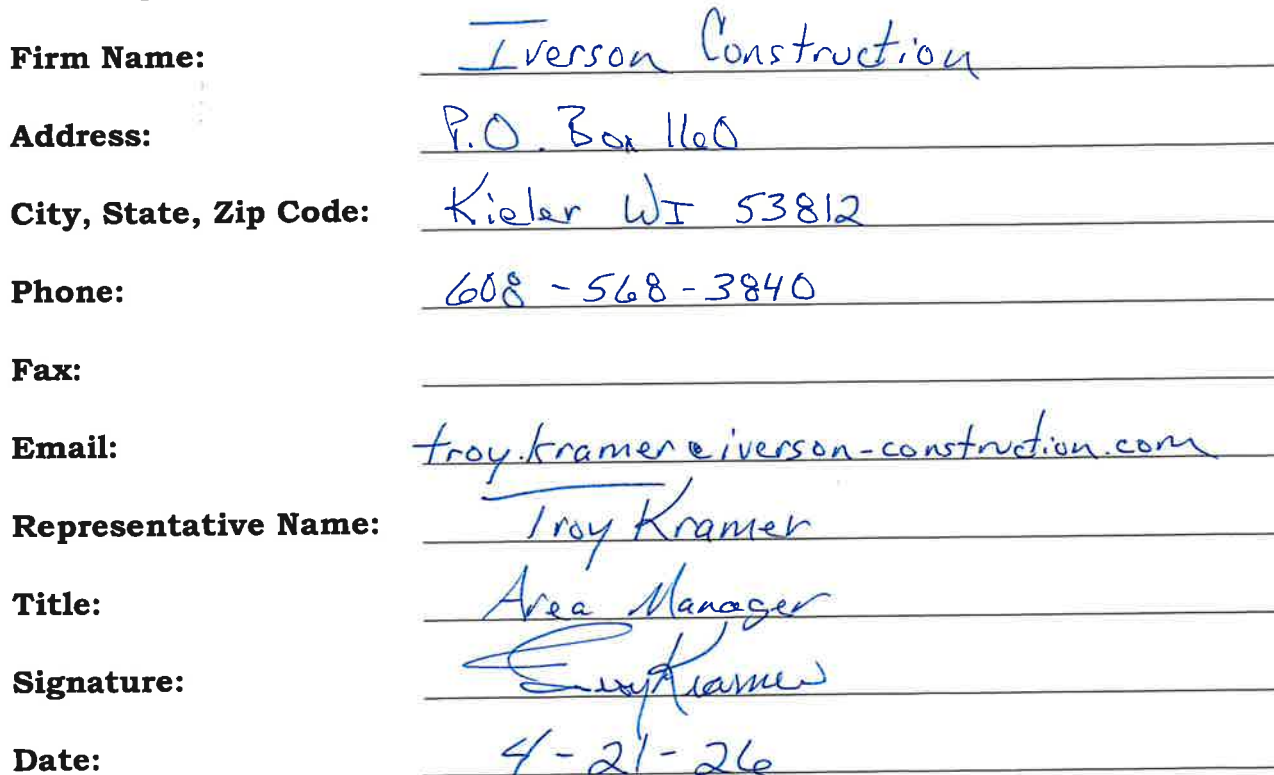 Firm Name: Iverson Construction
Address: P.O. Box 1160
City, State, Zip Code: Kieler WI 53812
Phone: 608-568-3840
Fax:
Email: troy.kramer@iverson-construction.com
Representative Name: Troy Kramer
Title: Area Manager
Signature: Troy Kramer
Date: 4-21-26